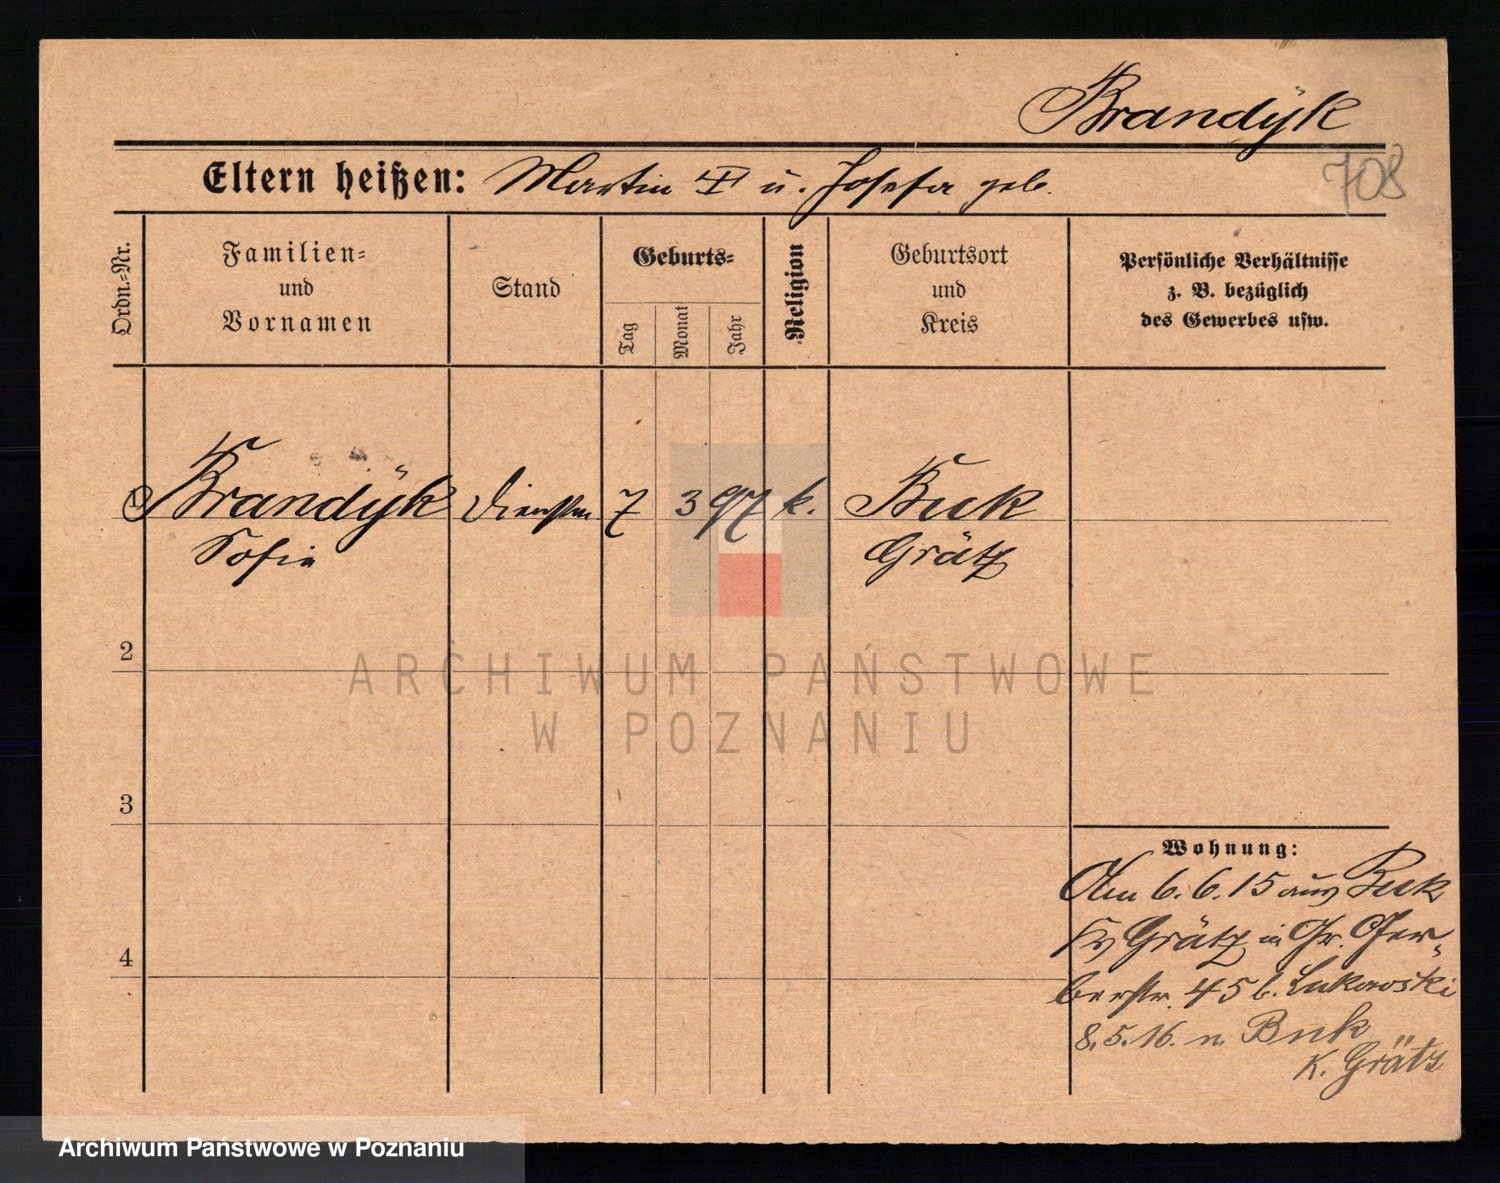 Brandÿk
708
Eltern heißen: Martin † u. Josefa geb.
Ordn.-Nr.
Familien-
und
Vornamen
Stand
Geburts-
Tag
Monat
Jahr
Religion
Geburtsort
und
Kreis
Persönliche Verhältnisse
z. B. bezüglich
des Gewerbes usw.
1 Brandÿk Dienstm 7 3 97 k. Buk
Sofie Grätz
2
ARCHIWUM PAŃSTWOWE
W POZNANIU
3
Wohnung:
Am 6.6.15 aus Buk
Kr Grätz in Gr. Ger-
berstr. 45 b. Lukowski
4
8.5.16. n. Buk
K. Gräts
Archiwum Państwowe w Poznaniu